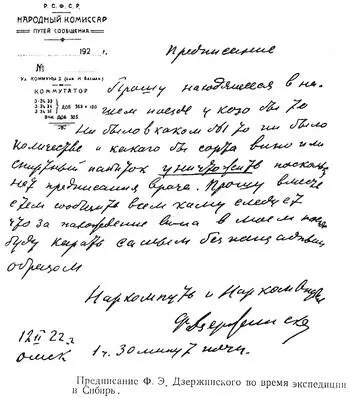 Р.С.Ф.С.Р.
НАРОДНЫЙ КОМИССАР
ПУТЕЙ СООБЩЕНИЯ
192 г.
№
КОММУТАТОР
Предписание
Прошу находящееся в на-
шем поезде у кого бы то
ни было в каком бы то ни было
количестве и какого бы сорта вино или
спиртный напиток уничтожить
нет предписания врача. Прошу вместе
с тем сообщить всем кому следует
что за нахождение вина в моем
буду карать самым беспощадным
образом
Наркомпуть и Наркомвнудел
Ф Дзержинский
12 II 22 г.
Омск 1 ч. 30 минут ночи.
Предписание Ф. Э. Дзержинского во время экспедиции
в Сибирь.